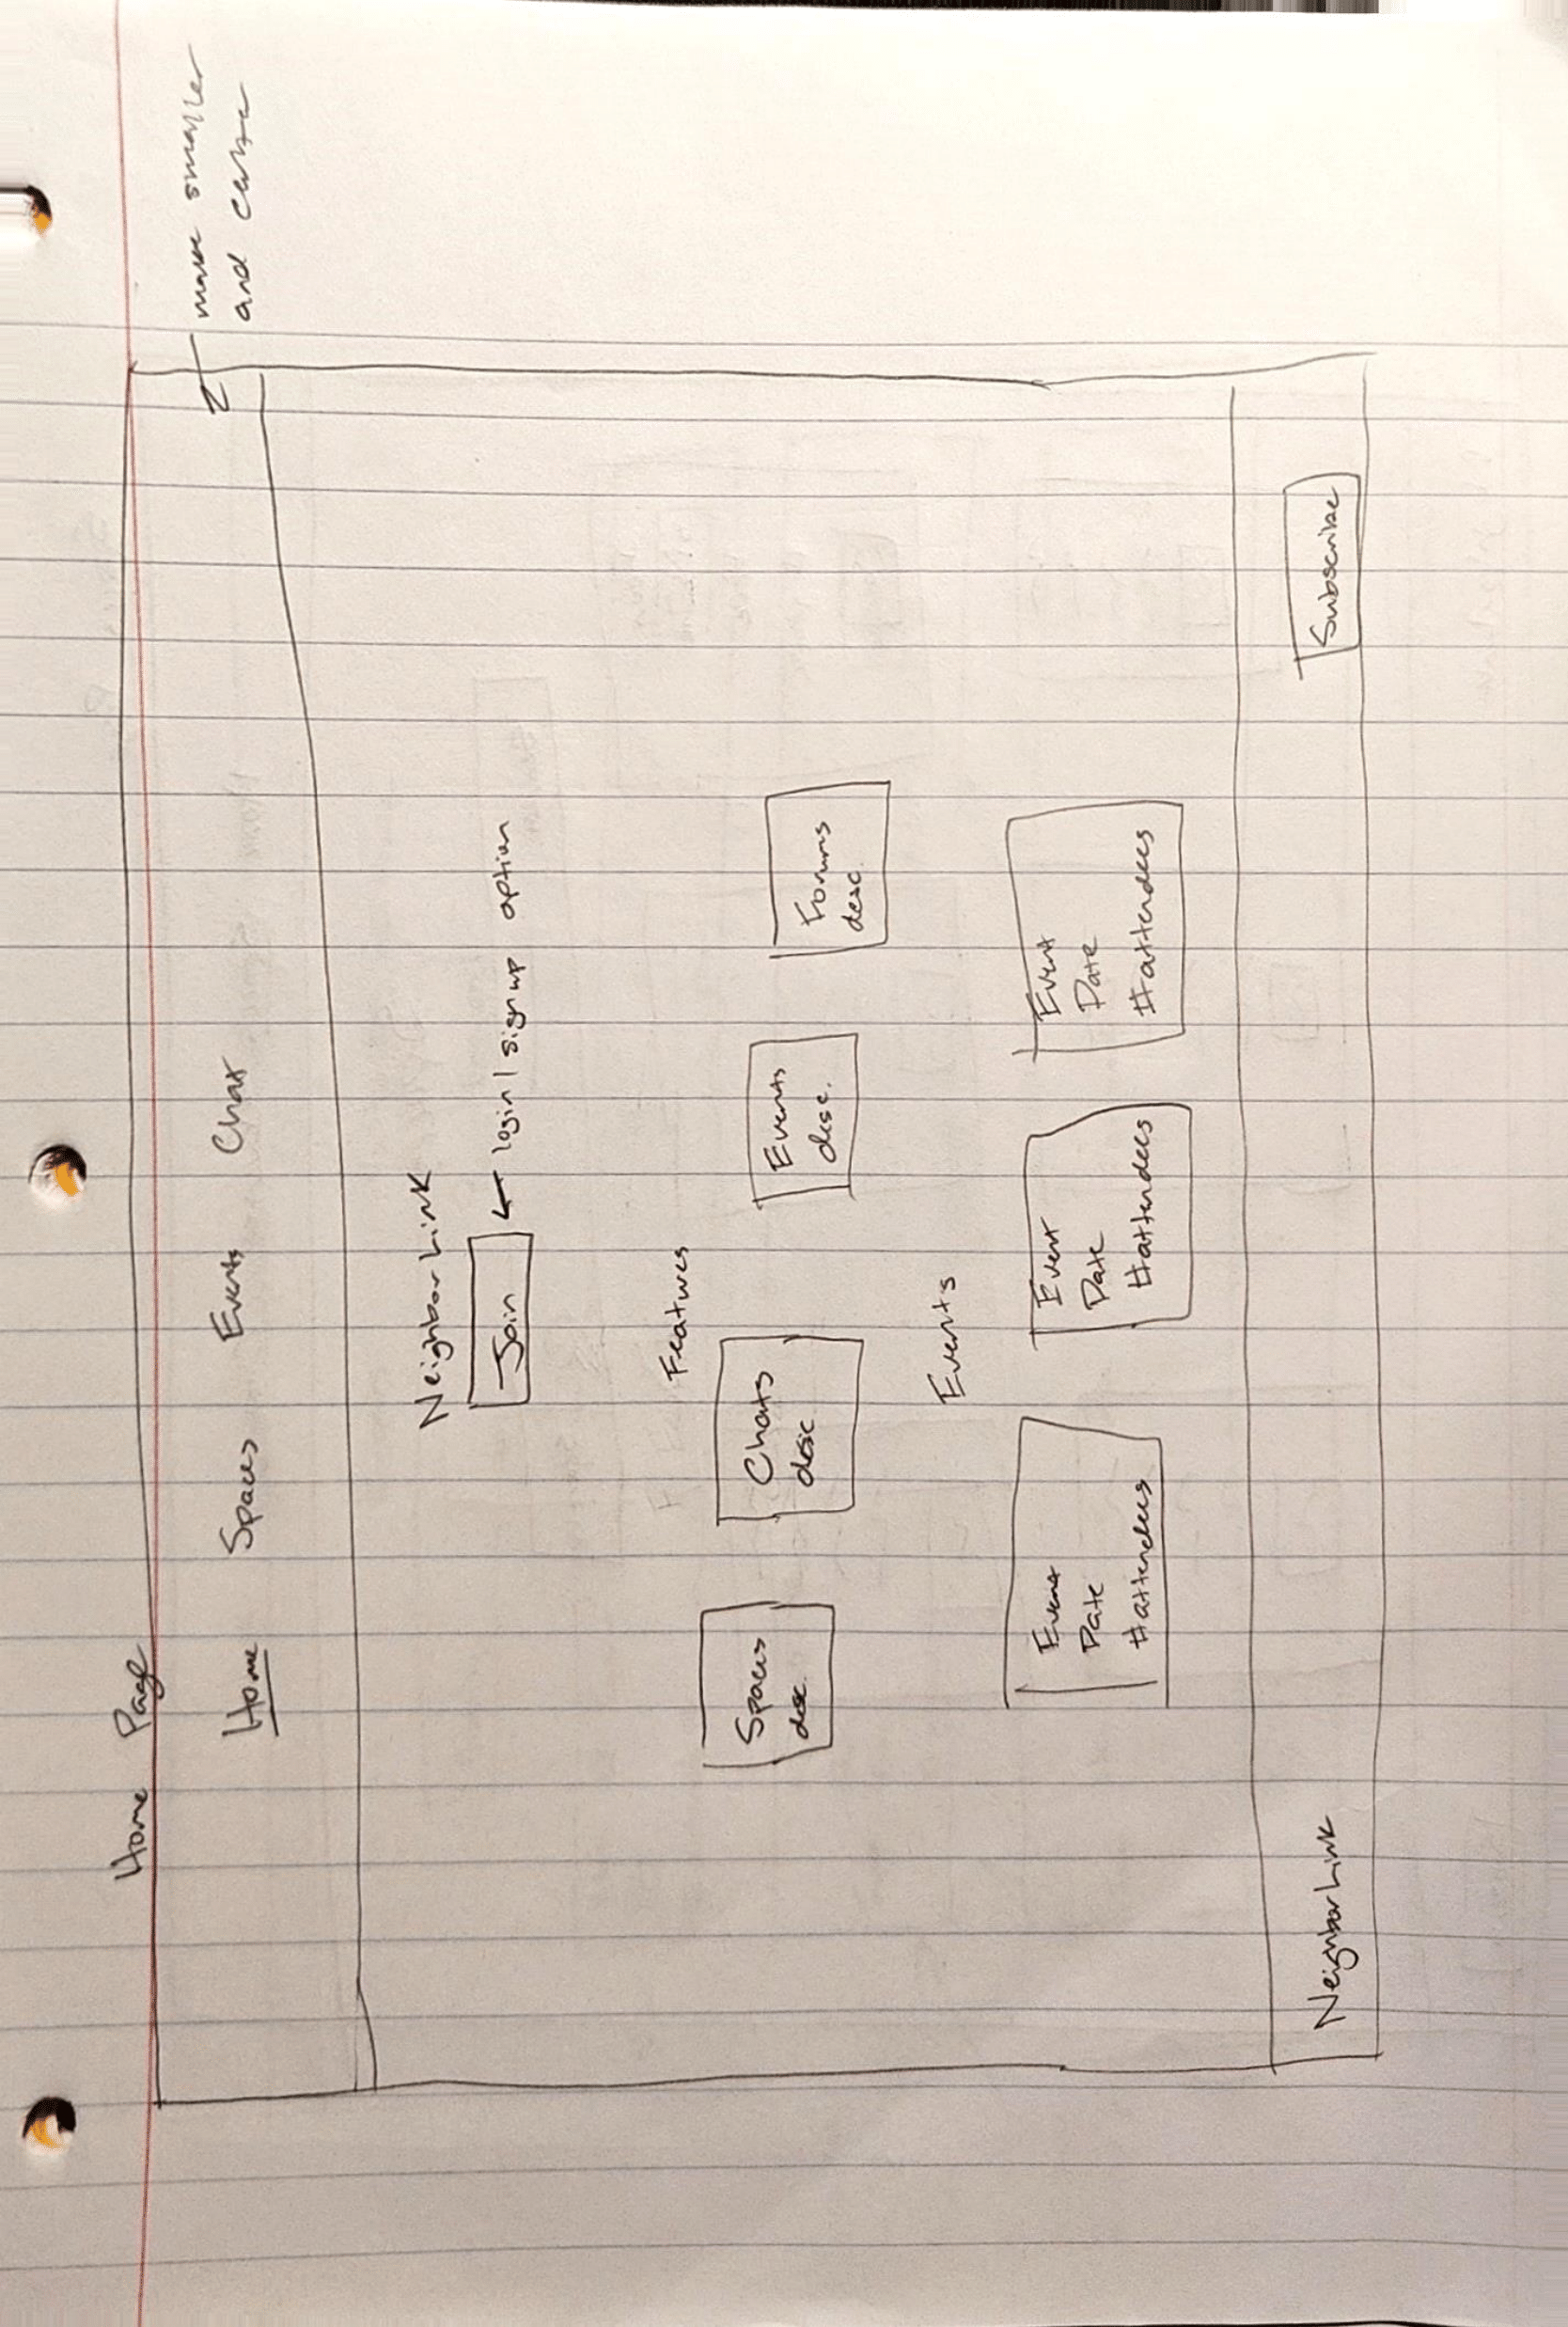 Home Page
make smaller
and center
Home Spaces Events Chat
NeighborLink
Join ← login / sign up option
Features
Spaces
desc.
Chats
desc
Events
desc.
Forums
desc.
Events
Event
Date
# attendees
Event
Date
# attendees
Event
Date
# attendees
NeighborLink
Subscribe